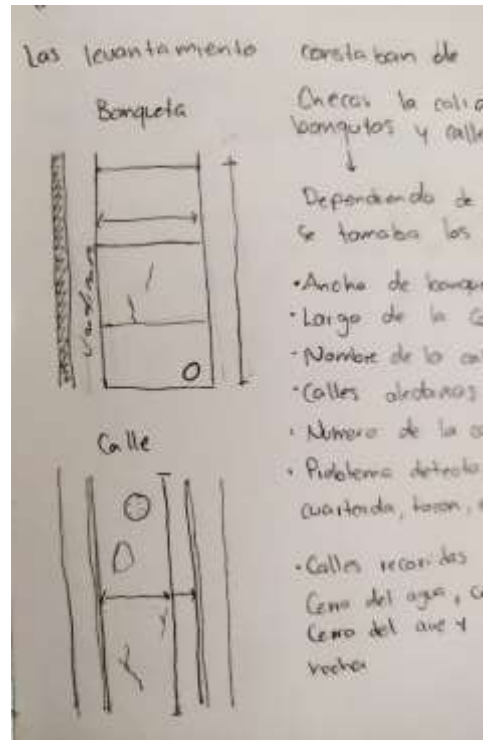 Las levantamiento constaban de
Banqueta
Checar la calid
banqutas y calle
Dependiendo de
se tomaba los
• Ancho de banque
• Largo de la c
• Nombre de la cal
• Calles aledañas
• Número de la c
• Problema detecta
cuarteada,
Calle
• Calles recorridas
Cerro del agua, c
Cerro del ave y